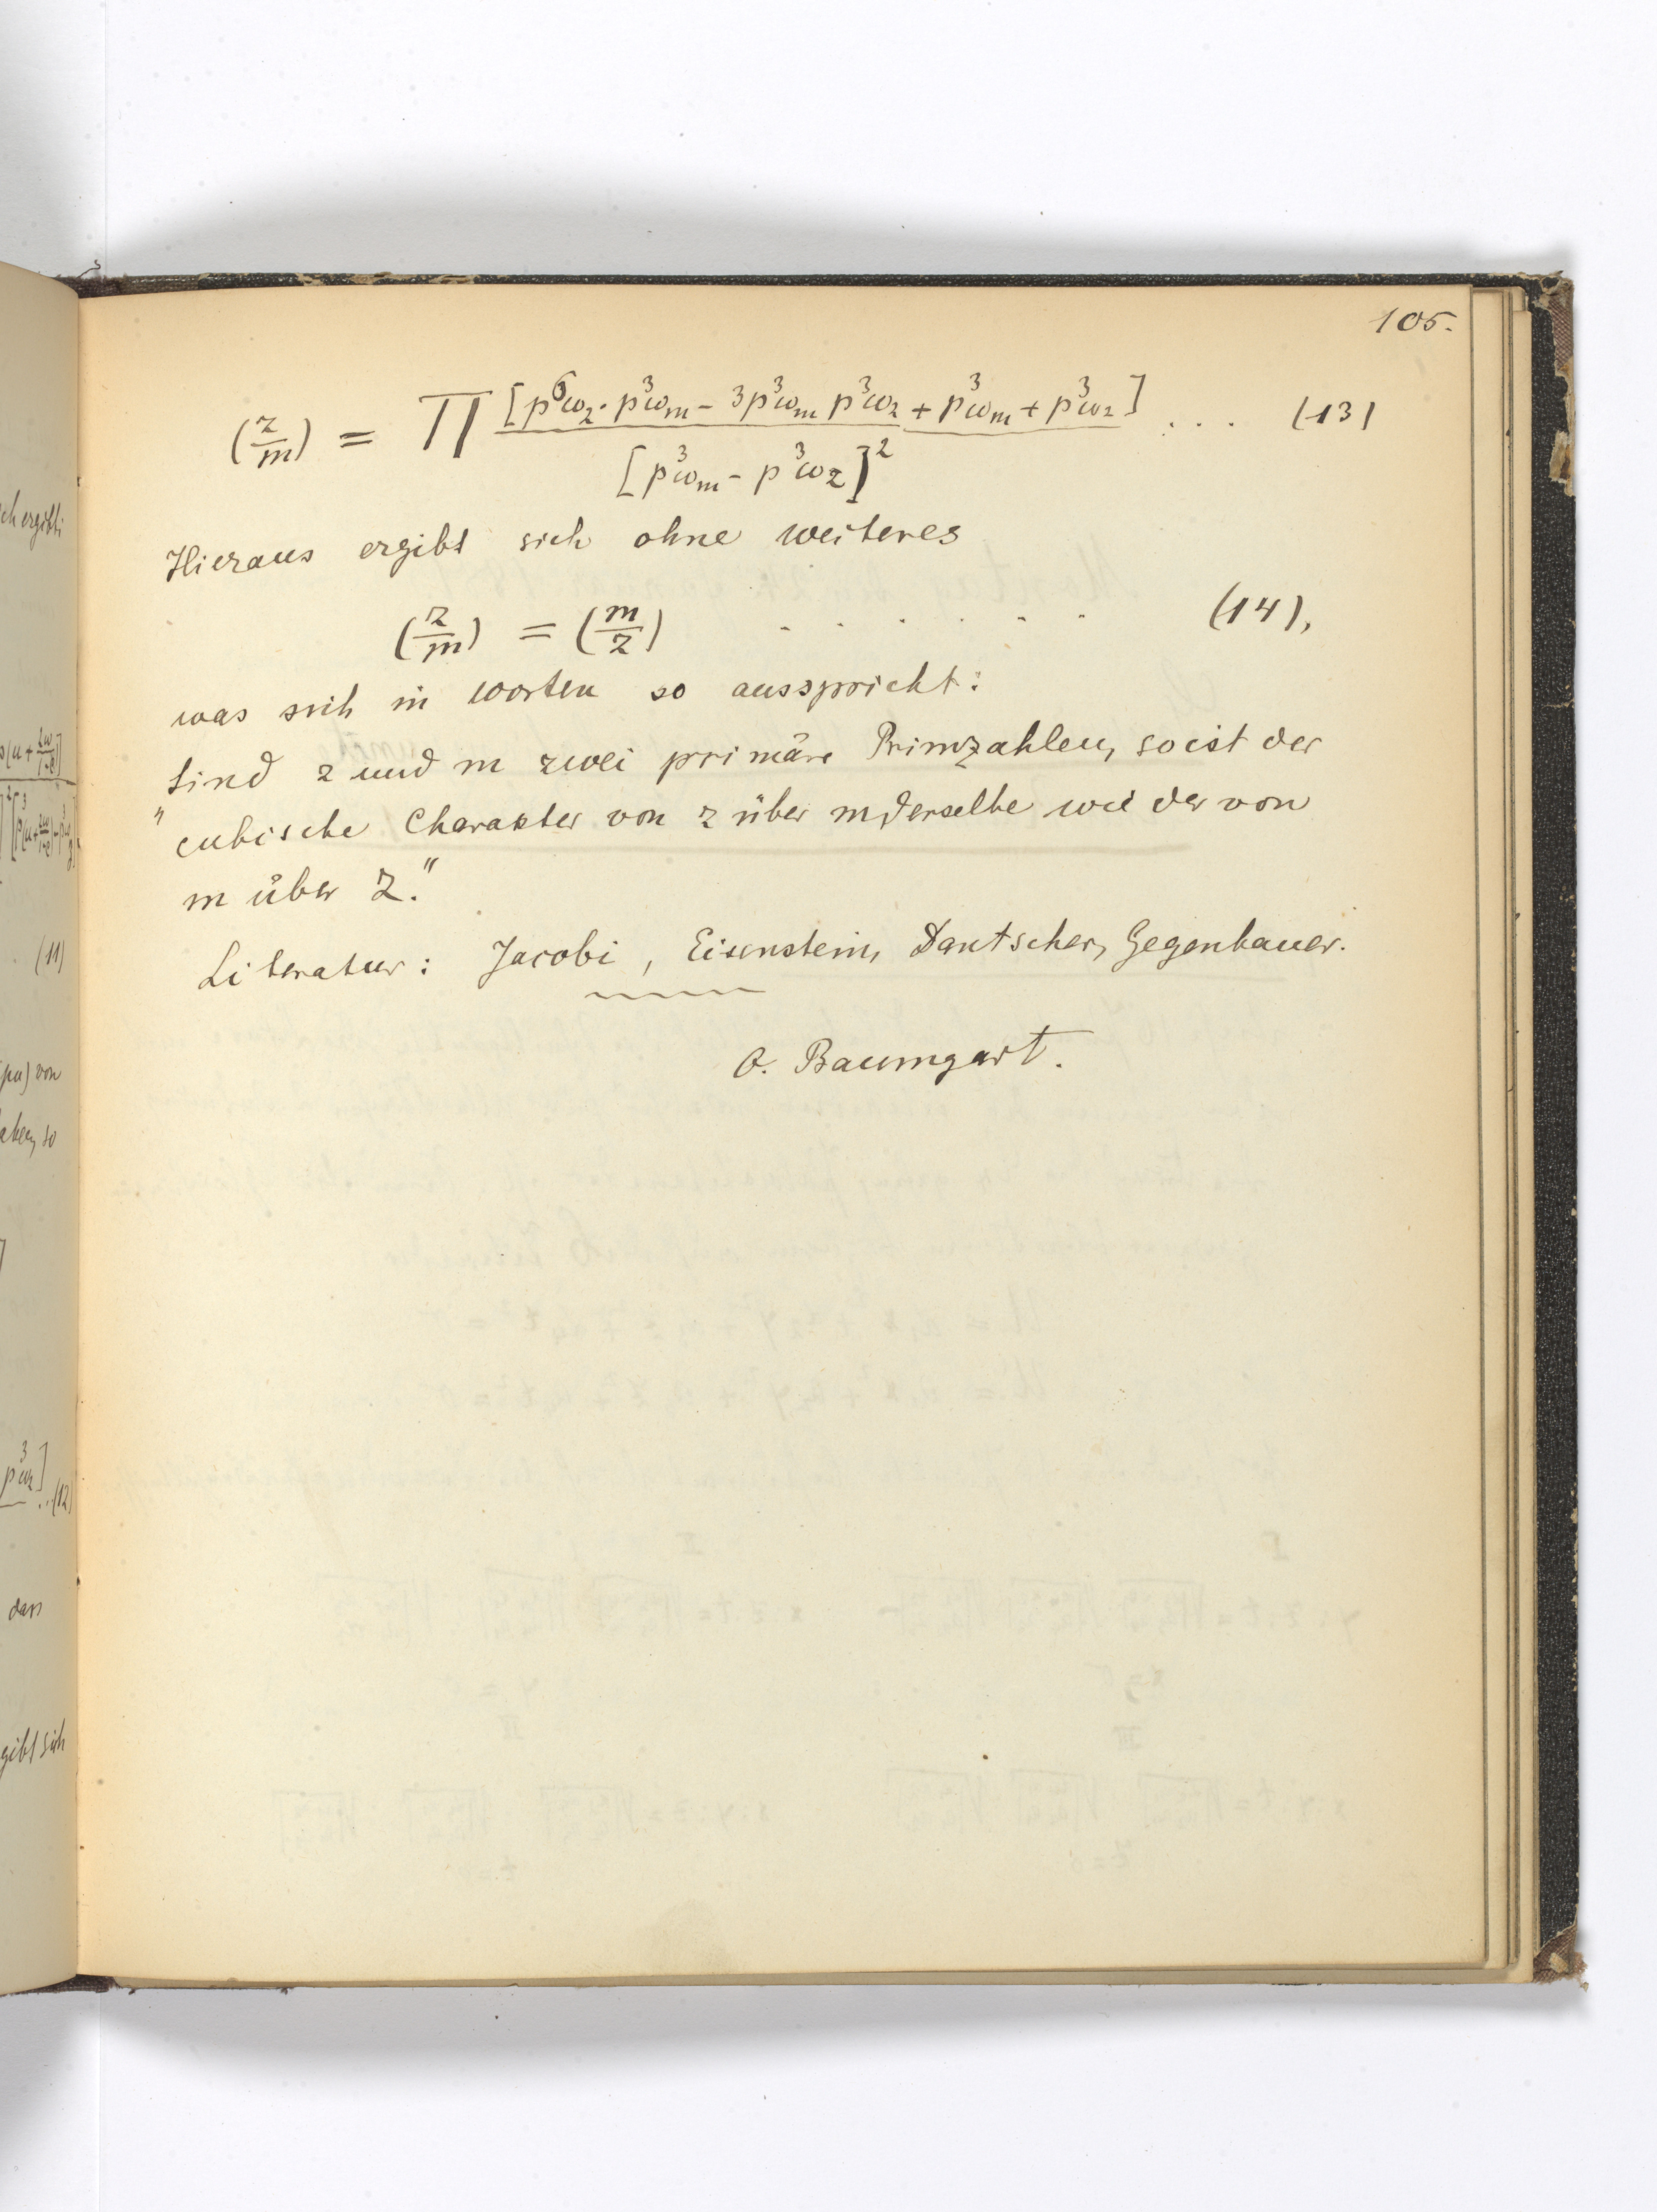 105.
(z/m) = Π [p⁶ω_z · p³ω_m − 3p³ω_m p³ω_z + p³ω_m + p³ω_z] / [p³ω_m − p³ω_z]² . . . (13)
Hieraus ergibt sich ohne weiteres
(z/m) = (m/z) . . . . . . (14),
was sich in worten so ausspricht:
"Sind z und m zwei primäre Primzahlen, so ist der
cubische Charakter von z über m derselbe wie der von
m über z."
Literatur: Jacobi, Eisenstein, Dantscher, Gegenbauer.
O. Baumgart.
ch ergibt
(11)
(pu) von
so
p³ω_z] ..(12)
dass
gibt sich